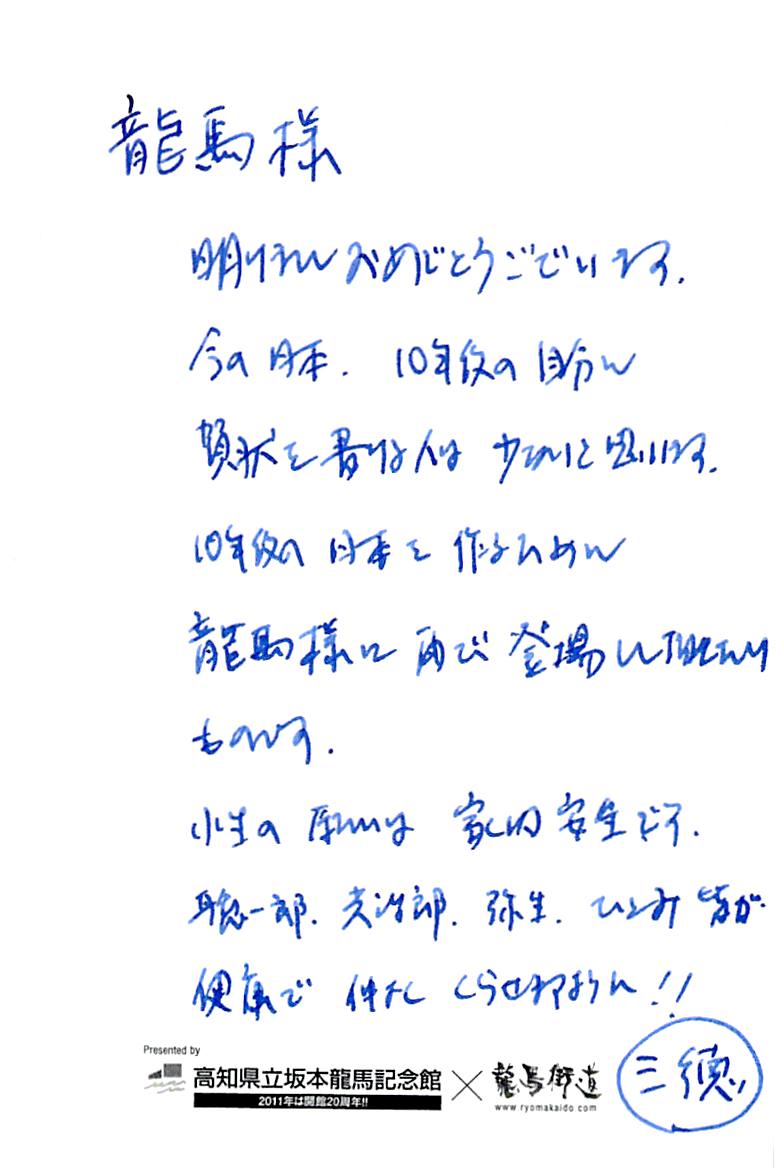 龍馬様
明けまして おめでとうございます.
今の 日本. 10年後の 自分に
賀状を書ける人は 少ないと思います.
10年後の 日本を 作るために
龍馬様に 再び 登場して頂きたい
ものです.
小生の 願いは 家内安全です.
聡一郎. 光治郎. 弥生. ひとみ 皆が
健康で 仲よく くらせますように!!
三徳
Presented by
高知県立坂本龍馬記念館
2011年は開館20周年!!
龍馬街道
www.ryomakaido.com